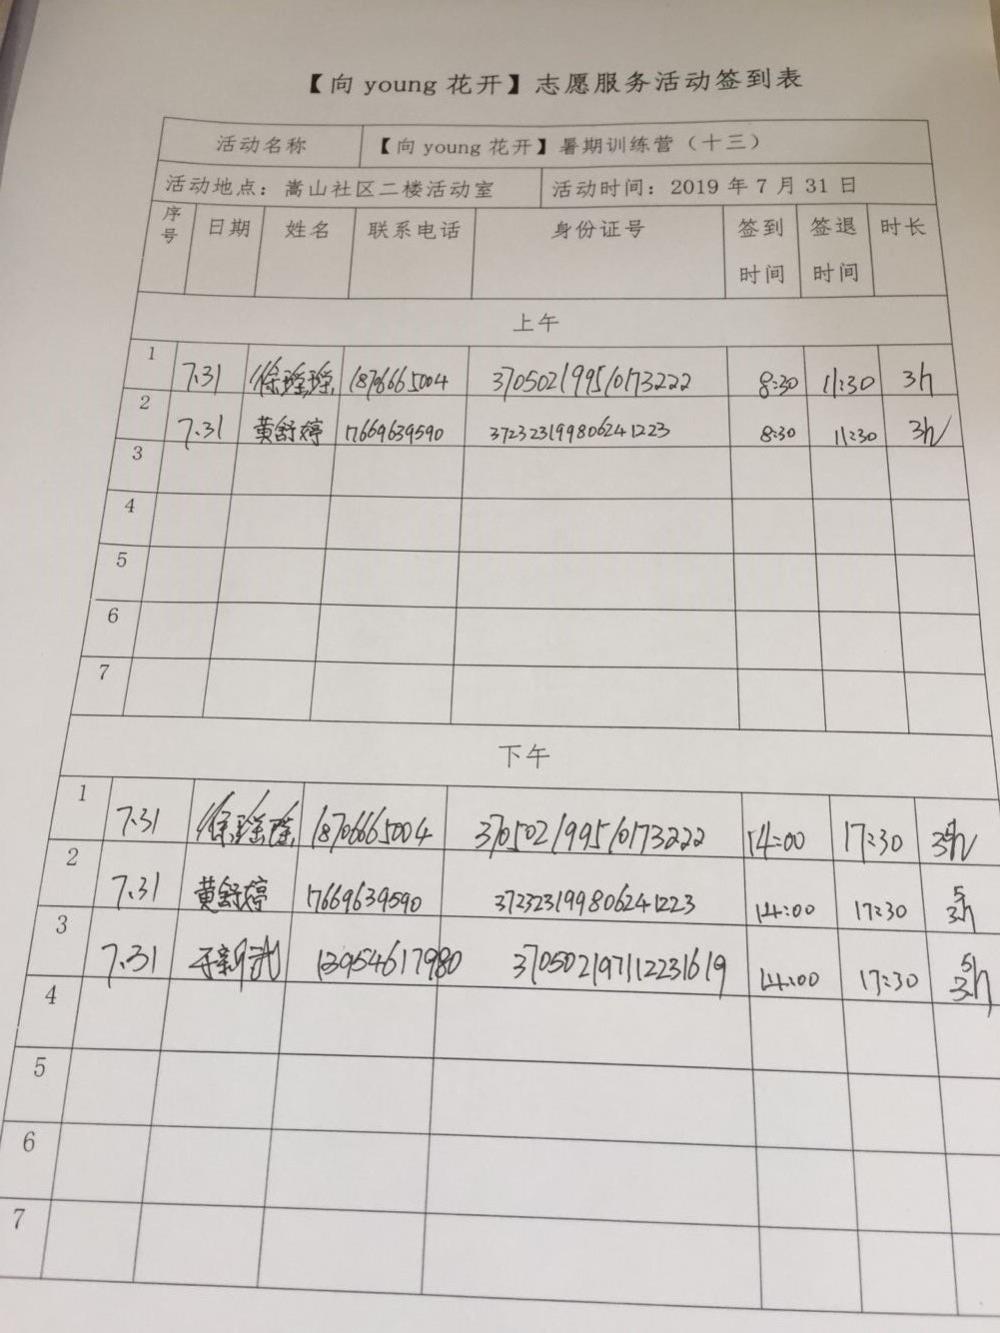 【向 young 花开】志愿服务活动签到表
活动名称 【向 young 花开】暑期训练营（十三）
活动地点：嵩山社区二楼活动室 活动时间：2019 年 7 月 31 日
序号 日期 姓名 联系电话 身份证号 签到时间 签退时间 时长
上午
1 7.31 徐瑶瑶 18706665004 370502199510173222 8:30 11:30 3h
2 7.31 黄舒婷 17669639590 372323199806241223 8:30 11:30 3h
3
4
5
6
7
下午
1 7.31 徐瑶瑶 18706665004 370502199510173222 14:00 17:30
2 7.31 黄舒婷 17669639590 372323199806241223 14:00 17:30
3 7.31 13954617980 370502197112231619 14:00 17:30
4
5
6
7